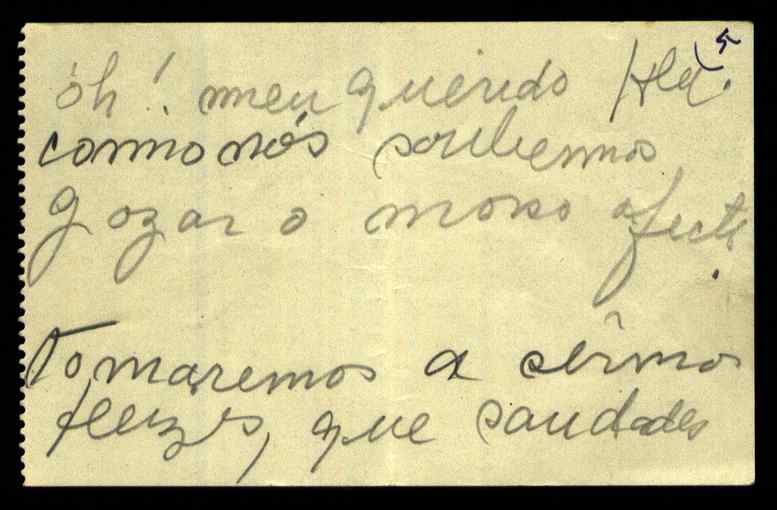 5
óh! meu querido
como nós soubemos
gozar o nosso afecto.
Tornaremos a sêrmos
felizes, que saudades